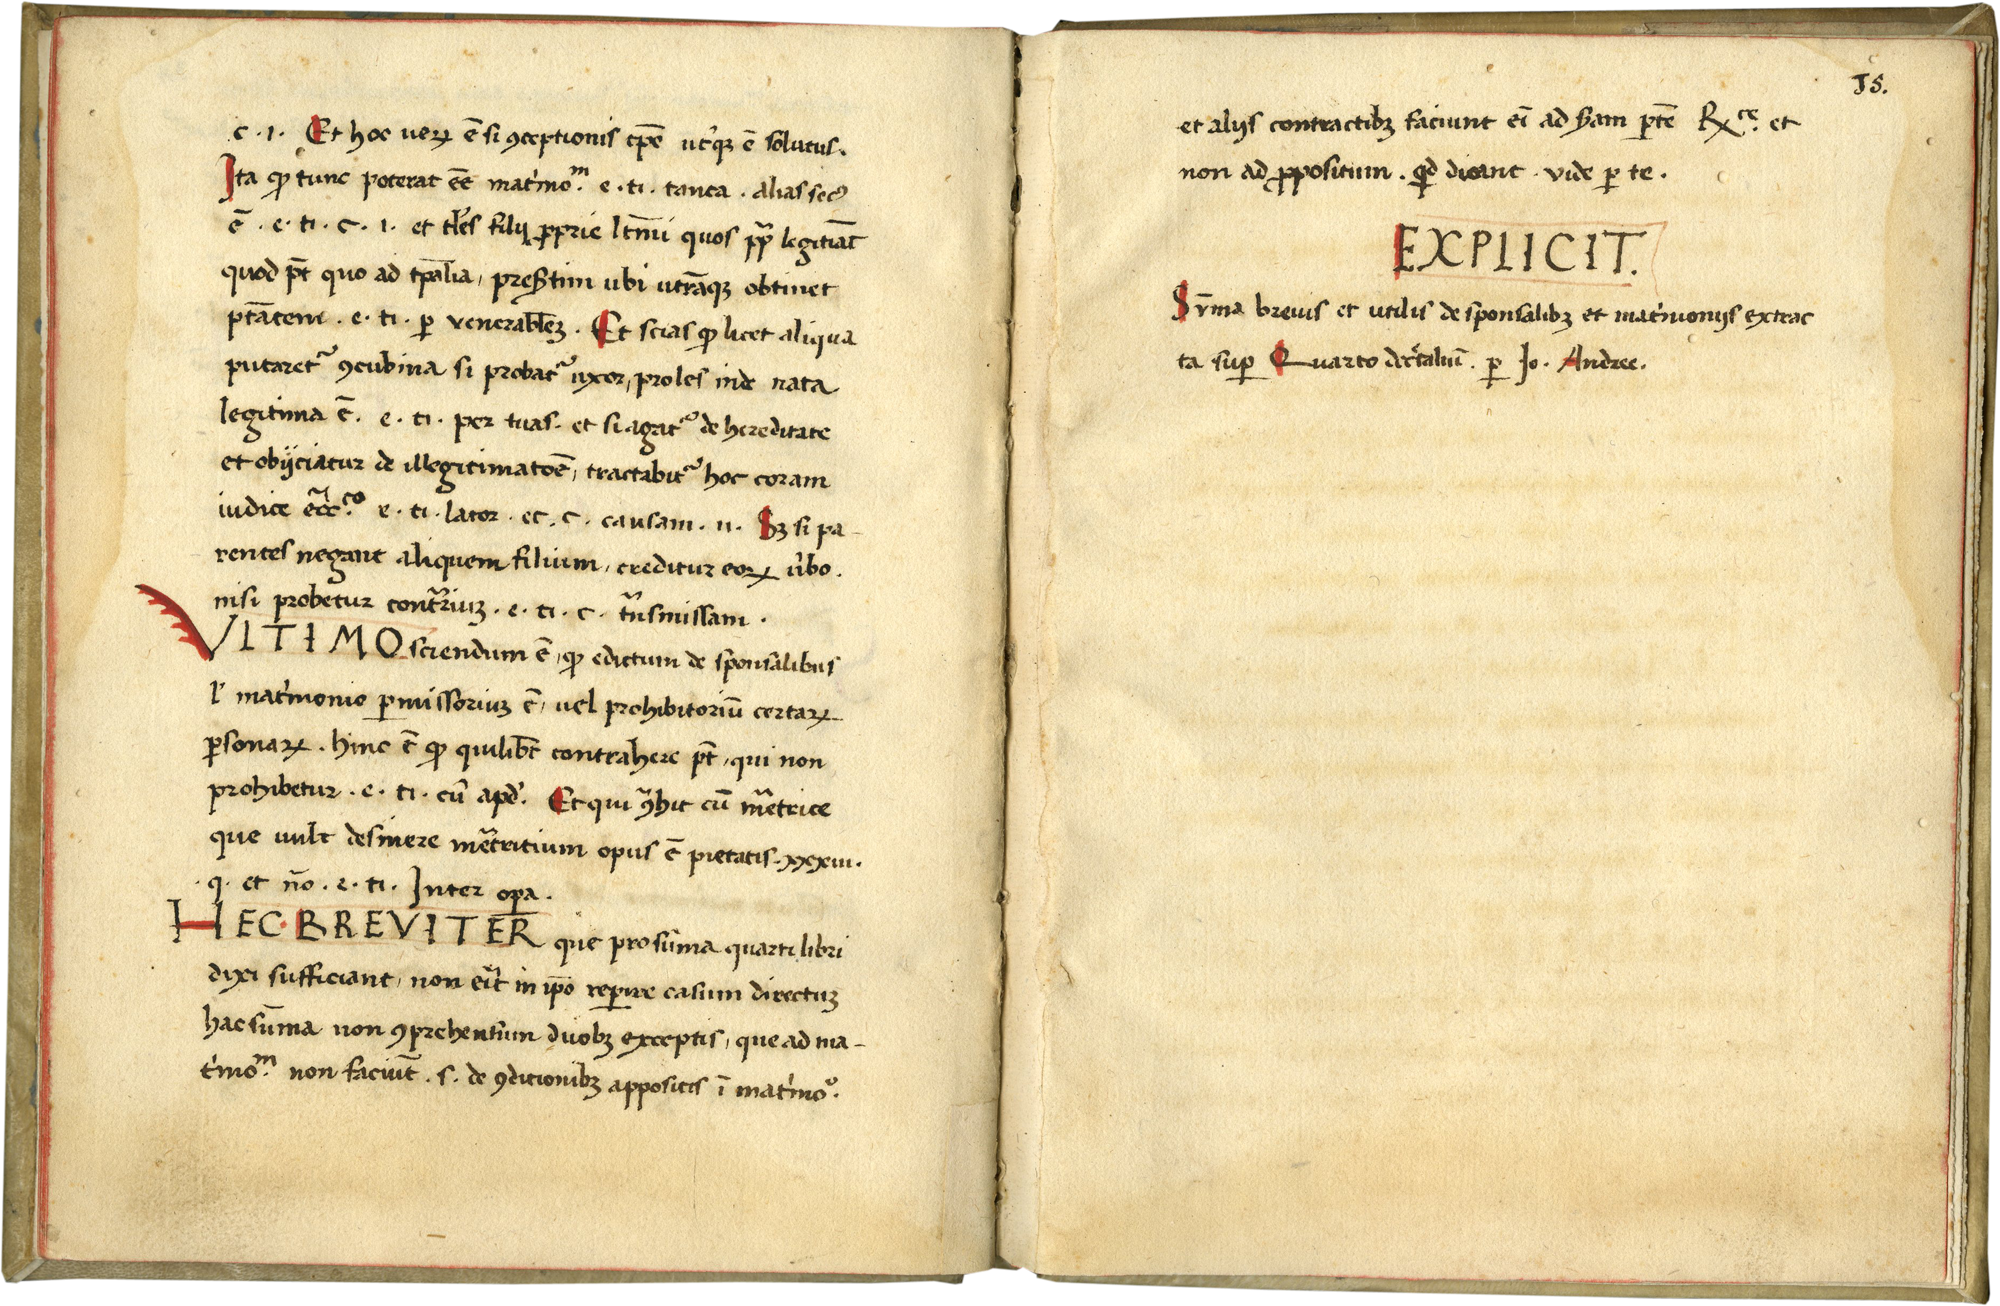 c . 1 . Et hoc uerꝝ ē si ꝯceptionis tp̄e utͥqꝫ ē solutus .
Ita ꝙ tunc poterat eē̄ matͥmo.ͫ e . ti . tanta . alias secꝰ
ē . e . ti . c . 1 . et filij ꝓprie quos legitiāt
quod pt̄ quo ad tp̄alia , presertim ubi utrāqꝫ obtinet
ptātem . e . ti . ꝑ venerabilem . Et scias ꝙ licet aliqua
putaretᷣ ꝯcubina si probatᷣ uxor , proles inde nata
legitima ē . e . ti . per tuas . et si agatᷣ de hereditate
et obijciatur de illegitimatōe , tractabitᷣ hoc coram
iudice ecc͞.ᶜᵒ e . ti . lator . et . c . causam . ii . Sꝫ si pa-
rentes negant aliquem filium , creditur eoꝝ ūbo .
nisi probetur contͣriuꝫ . e . ti . c . tͣnsmissam .
VLTIMO sciendum ē , ꝙ edictum de sponsalibus
lʼ matͥmonio ꝑmissoriuꝫ ē , uel prohibitoriū certaꝝ
ꝑsonaꝝ . hinc ē ꝙ quilibꝫ contrahere pt̄ , qui non
prohibetur . e . ti . cū apd̓ . Et qui ꝯͣhit cū mͤetrice
que uult desinere mͤetritium opus ē pietatis . xxxiii .
. q . et nō . e . ti . Inter oꝑa .
HEC BREVITER que pro sūma quarti libri
dixi sufficiant , non erit in ip̄o reꝑire casum directuꝫ
hac sūma non ꝯprehensum duobꝫ exceptis , que ad ma-
tͥmo.ͫ non faciūt . s . de ꝯditionibꝫ appositis ī matͥmoᵒ.
15.
et alijs contractibꝫ faciunt eī ad ptē R.ᶜᵉ et
non ad ꝓpositum . qd̄ dicant . vide ꝑ te .
EXPLICIT.
Sūma breuis et utilis de sponsalibꝫ et matͥmonijs extrac
ta suꝑ Quarto decͬtaliū . ꝑ Io . Andree .